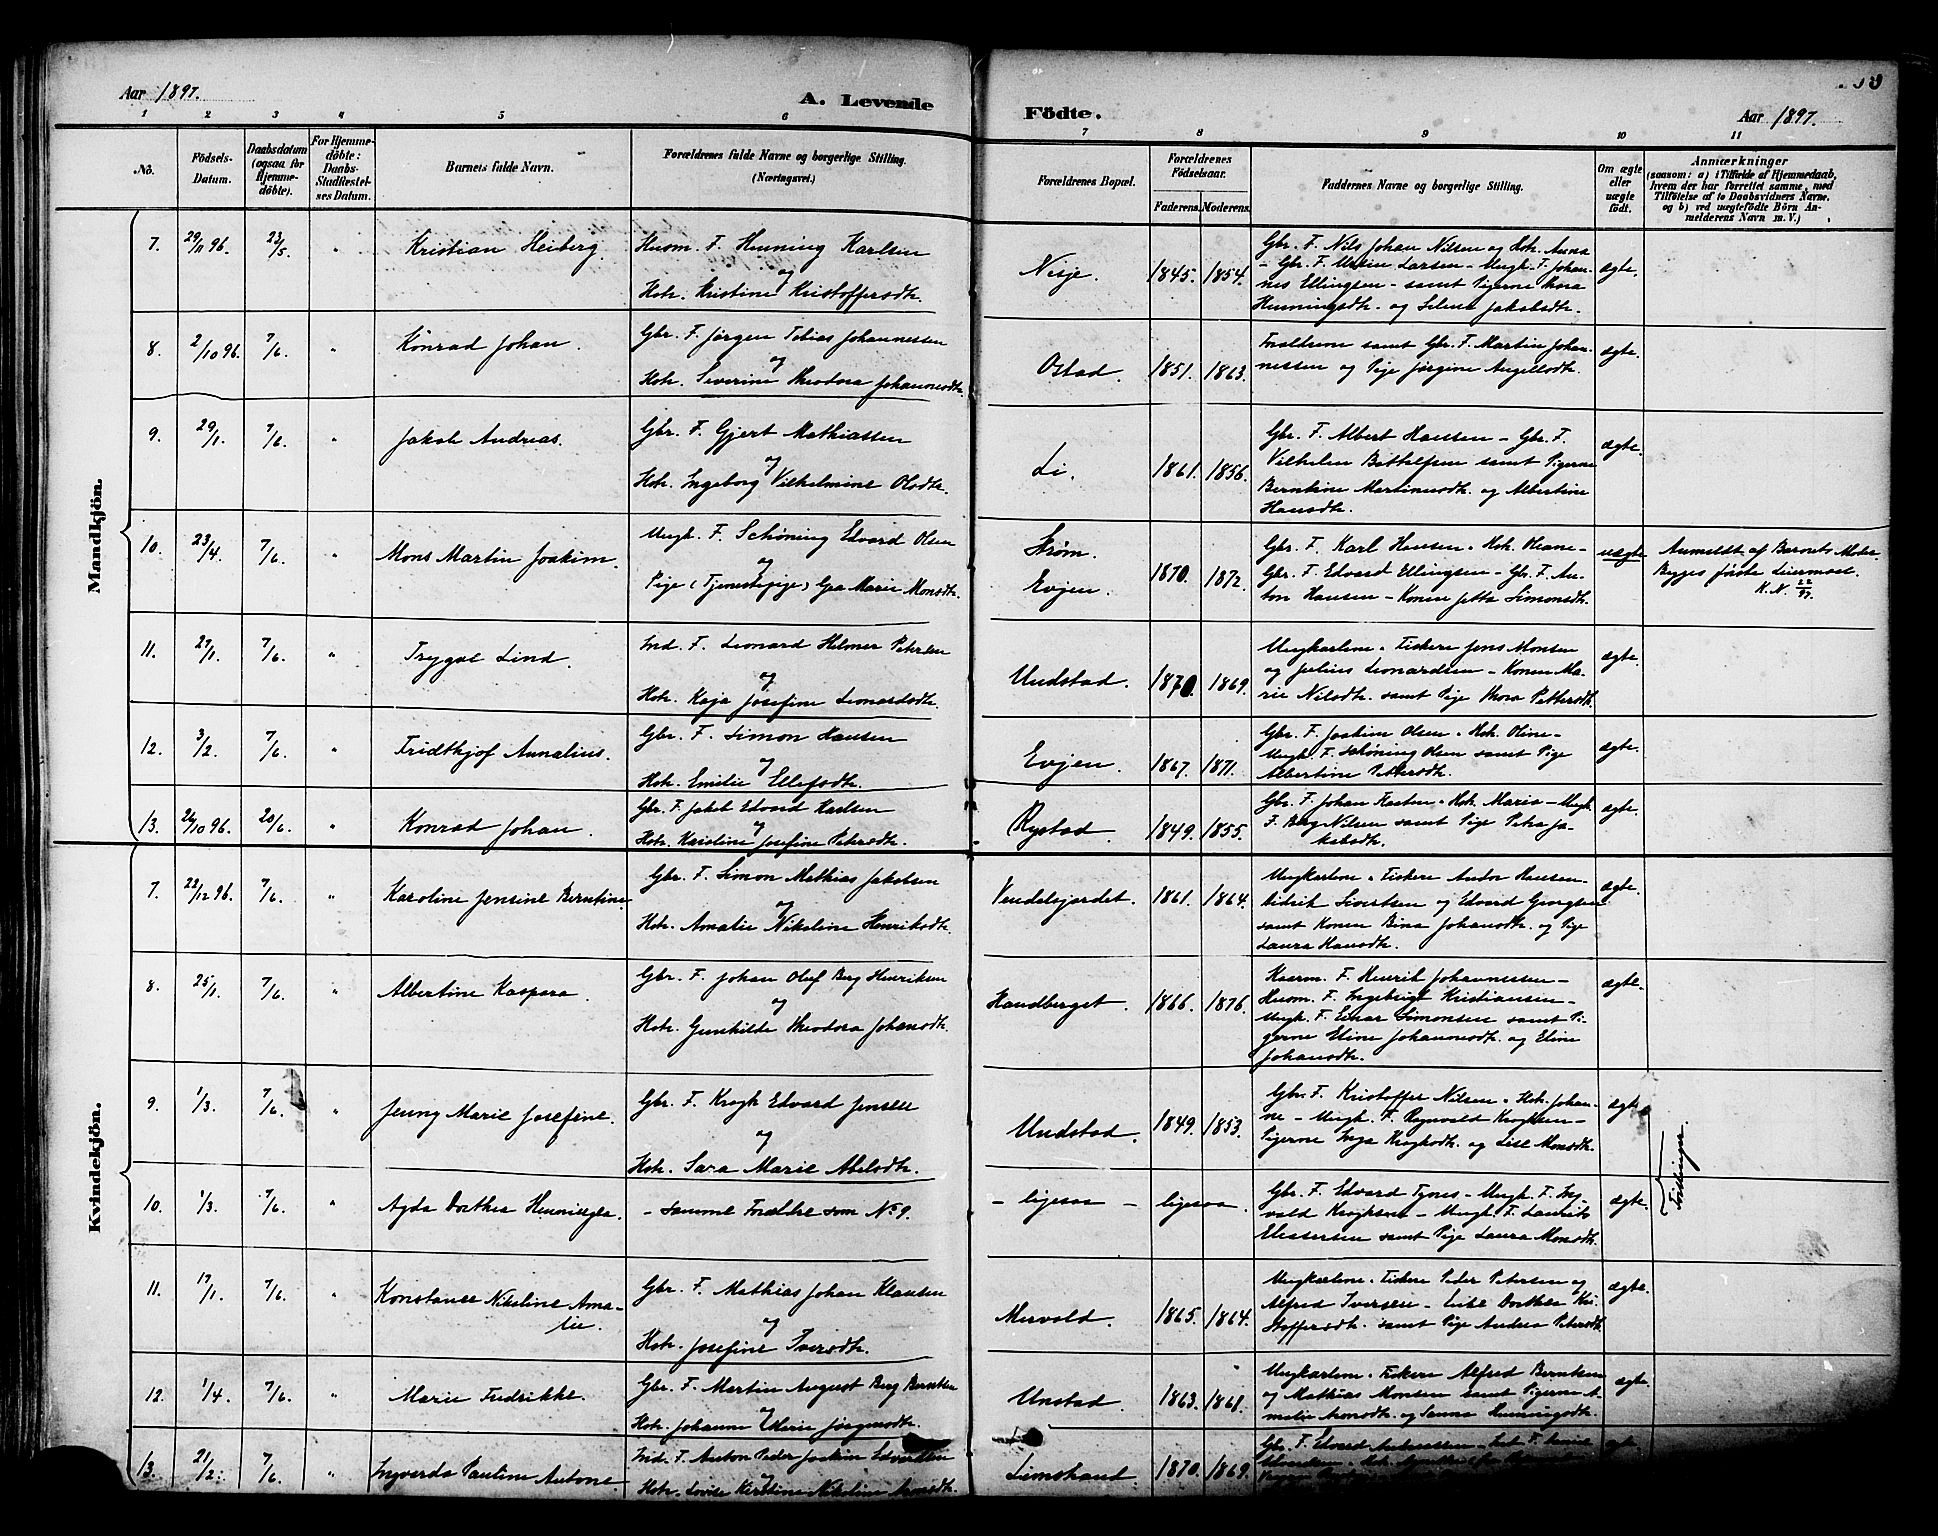 Aar 1897.
A. Levende
Födte.
Aar 1897.
1 2 3 4 5 6 7 8 9 10 11
No.
Födsels-Datum.
Daabsdatum (ogsaa for Hjemmedöbte).
For Hjemmedöbte: Daabs-Stadfæstelses Datum.
Barnets fulde Navn.
Forældrenes fulde Navne og borgerlige Stilling.
(Næringsvei.)
Forældrenes Bopæl.
Forældrenes Födselsaar.
Faderens. Moderens.
Faddernes Navne og borgerlige Stilling.
Om ægte eller uægte födt.
Anmærkninger
(saasom: a) i Tilfælde af Hjemmedaab, hvem der har forrettet samme, med Tilföielse af to Daabsvidners Navne. og b) ved uægtefödte Börn Anmelderens Navn m. V.)
Mandkjön.
7. 29/11 96. 23/5. " Kristian Heiberg. Husm. F. Henning Karlsen
og
Hstr. Kristine Kristoffersdtr.
Nisje. 1845. 1854.
Gbr. F. Nils Johan Nilsen og Hstr. Anna
- Gbr. F. Martin Larsen - Ungk. F. Johan-
nes Ellingsen - samt Pigerne Thora
Henningsdtr. og Selma Jakobsdtr.
ægte.
8. 2/10 96. 7/6. " Konrad Johan. Gbr. F. Jørgen Tobias Johannessen
og
Hstr. Severine Theodora Johannesdtr.
Ostad. 1851. 1863.
Forældrene samt Gbr. F. Martin Johan-
nessen og Pige Jørgine Angellsdtr.
ægte.
9. 29/1. 7/6. " Jakob Andreas. Gbr. F. Gjert Mathiassen
og
Hstr. Ingeborg Vilhelmine Olsdtr.
Li. 1861. 1856.
Gbr. F. Albert Hansen - Gbr. F.
Vilhelm Bottolfsen samt Pigerne
Berntine Martinusdtr. og Albertine
Hansdtr.
ægte.
10. 23/4. 7/6. " Mons Martin Joakim. Ungk. F. Schøning Edvard Olsen
og
Pige (Tjenestepige) Gea Marie Monsdtr.
Strøm.
Evjen. 1870. 1872.
Gbr. F. Karl Hansen. Hstr. Oleane -
Gbr. F. Edvard Ellingsen - Gbr. F. An-
ton Hansen - Konen Jetta Simonsdtr.
uægte
Anmeldt af Barnets Moder.
Begges første Leiermaal.
K. N. 22/97.
11. 27/1. 7/6. " Trygve Lind. Ind. F. Leonard Helmer Petersen
og
Hstr. Kaja Josefine Leonardsdtr.
Undstad. 1870. 1869.
Ungkarlene. Fiskere Jens Monsen
og Julius Leonardsen - Konen Ma-
rie Nilsdtr. samt Pige Thora Pettersdtr.
ægte.
12. 3/2. 7/6. " Fridthjof Annalius. Gbr. F. Simon Hansen
og
Hstr. Emilie Ellefsdtr.
Evjen. 1867. 1871.
Gbr. F. Joakim Olsen. Hstr. Oline -
Ungk. F. Schøning Olsen samt Pige
Albertine Pettersdtr.
ægte.
13. 26/10 96. 20/6. " Konrad Johan. Gbr. F. Jakob Edvard Karlsen
og
Hstr. Karoline Josefine Petersdtr.
Rystad. 1849. 1855.
Gbr. F. Johan Karsten. Hstr. Maria - Ungk.
F. Berg Nilsen samt Pige Petra Ja-
kobsdtr.
ægte.
Kvindekjön.
7. 22/12 96. 7/6. " Karoline Jensine Berntine. Gbr. F. Simon Mathias Jakobsen
og
Hstr. Amalie Nikoline Henriksdtr.
Vendelsjordet. 1861. 1864.
Ungkarlene. Fiskere Andor Hansen -
Didrik Sivertsen og Edvard Georgsen
samt Konen Bina Johansdtr. og Pige
Laura Hansdtr.
ægte.
8. 25/1. 7/6. " Albertine Kaspara. Gbr. F. Johan Oluf Berg Henriksen
og
Hstr. Gunhilde Theodora Johansdtr.
Sandberget. 1866. 1876.
Kaarm. F. Henrik Johannessen -
Husm. F. Ingebrigt Kristiansen -
Ungk. F. Einar Simonsen samt Pi-
gerne Eline Johannesdtr. og Eline
Johansdtr.
ægte.
9. 1/3. 7/6. " Jenny Marie Josefine. Gbr. F. Krogh Edvard Jensen
og
Hstr. Sara Marie Abelsdtr.
Undstad. 1849. 1853.
Gbr. F. Kristoffer Nilsen. Hstr. Johan-
ne - Ungk. F. Reynvald Kroghsen -
Pigerne Inga Kroghsdtr. og Lise Monsdtr.
ægte
Tvillinger.
10. 1/3. 7/6. " Agda Dorthea Henningea. - samme Forældre som No 9.
- ligesaa - ligesaa
Gbr. F. Edvard Tynes - Ungk. F. Ing-
vald Kroghsen - Ungk. F. Laurits
Messersen samt Pige Laura Monsdtr.
ægte.
11. 17/1. 7/6. " Konstance Nikoline Ama-
lie. Gbr. F. Mathias Johan Klausen
og
Hstr. Josefine Iversdtr.
Mervold. 1865. 1864.
Ungkarlene. Fiskere Peder Petersen og
Alfred Iversen - Enke Dorthea Kri-
stoffersdtr. samt Pige Andrea Petersdtr.
ægte.
12. 1/4. 7/6. " Marie Fredrikke. Gbr. F. Martin August Berg Berntsen
og
Hstr. Johanne Marie Jørgensdtr.
Unstad. 1863. 1861.
Ungkarlene. Fiskere Alfred Berntsen
og Mathias Monsen samt Pigerne A-
malie Monsdtr. og Sanna Henningsdtr.
ægte.
13. 21/2. 7/6. " Ingverda Pauline Antone. Ind. F. Anton Peder Joakim Edvardsen
og
Hstr. Lovise Kerstine Nikoline Aronsdtr.
Limstrand. 1870. 1869.
Gbr. F. Edvard